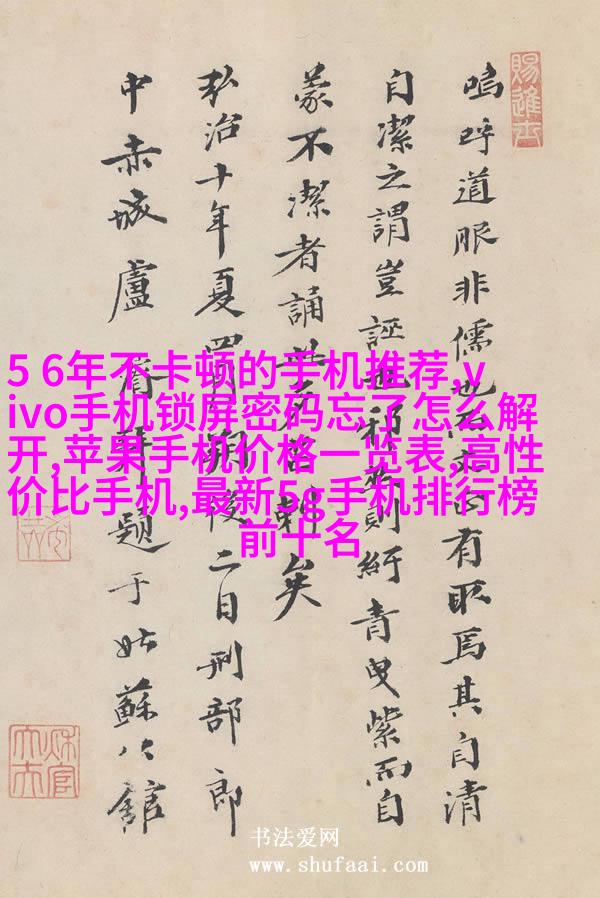 賜進士
嗚呼道服非儒也
有取焉其自清
自潔之謂豈誣
則紆青曳紫而自
蒙不潔者誦
矣
弘治十年夏四月朔後二日刑部郎
中赤城盧
題于姑蘇公館
5 6年不卡顿的手机推荐,v
ivo手机锁屏密码忘了怎么解
开,苹果手机价格一览表,高性
价比手机,最新5g手机排行榜
前十名
秋官
大夫
书法爱网
www.shufaai.com